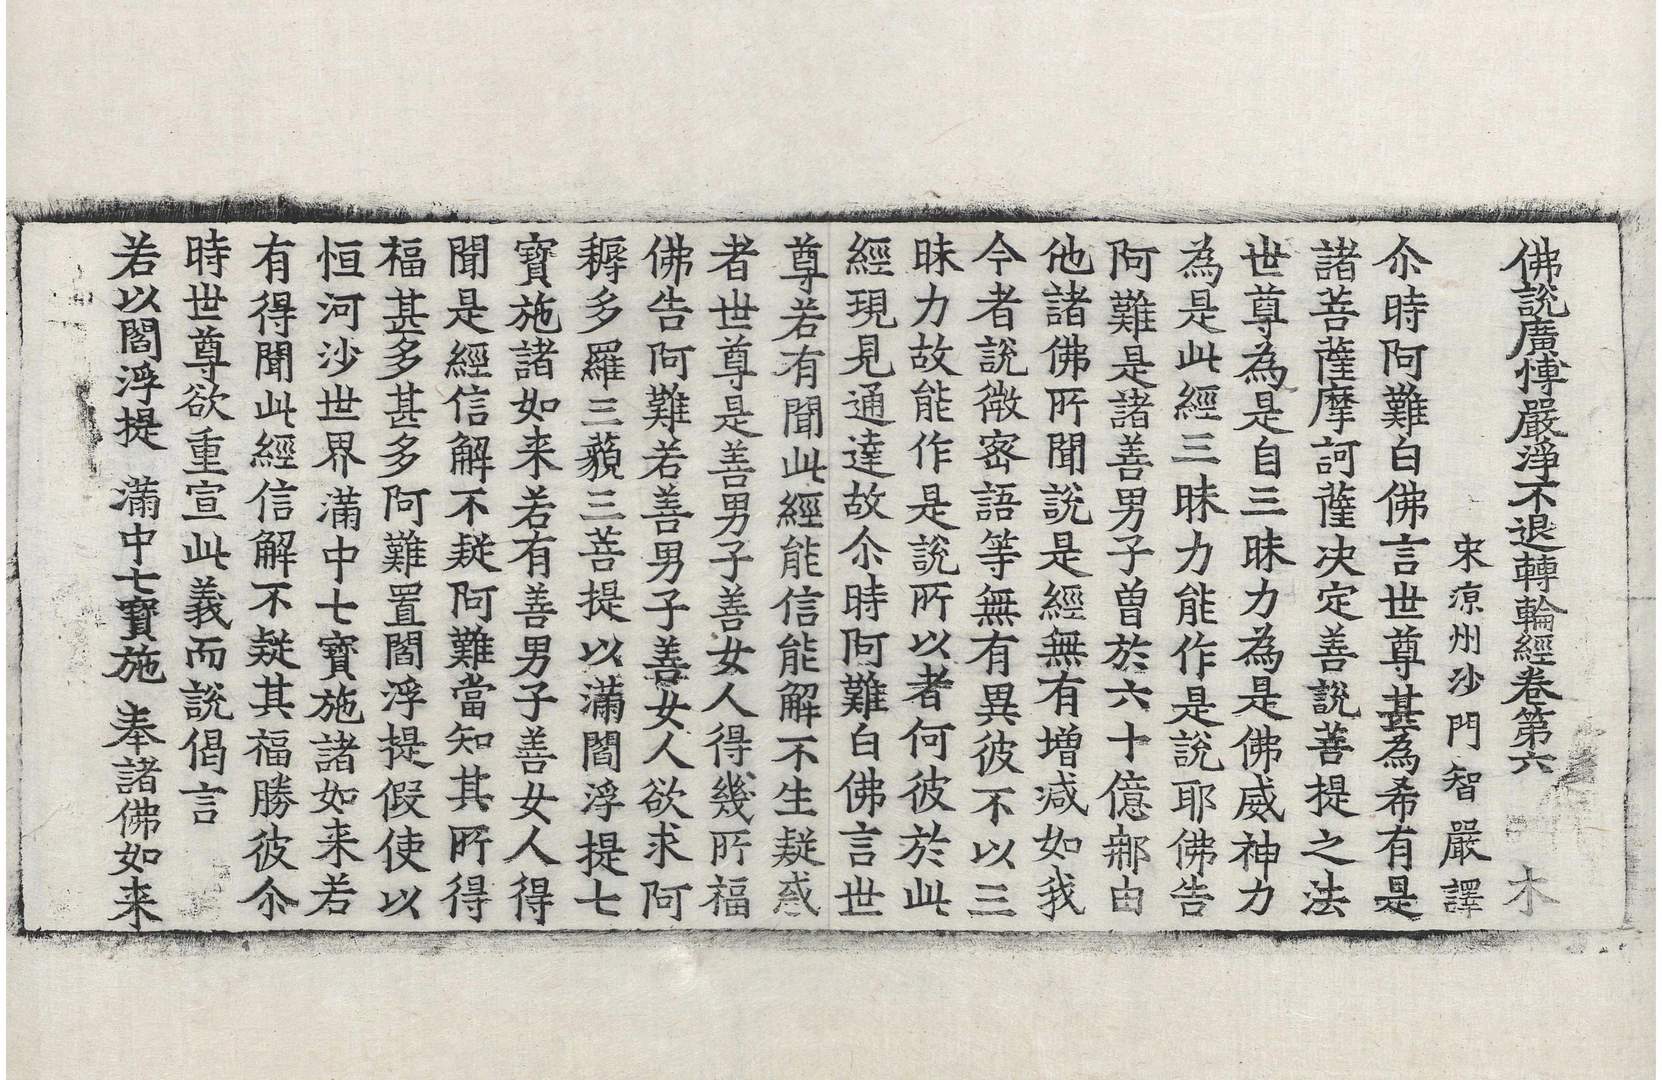 佛說廣博嚴淨不退轉輪經卷第六 木
宋涼州沙門智嚴譯
尒時阿難白佛言世尊甚為希有是
諸菩薩摩訶薩決定善說菩提之法
世尊為是自三昧力為是佛威神力
為是此經三昧力能作是說耶佛告
阿難是諸善男子曾於六十億𨚗由
他諸佛所聞說是經無有增減如我
今者說微密語等無有異彼不以三
昧力故能作是說所以者何彼於此
經現見通達故尒時阿難白佛言世
尊若有聞此經能信能解不生疑惑
者世尊是善男子善女人得幾所福
佛告阿難若善男子善女人欲求阿
耨多羅三藐三菩提以滿閻浮提七
寶施諸如来若有善男子善女人得
聞是經信解不疑阿難當知其所得
福甚多甚多阿難置閻浮提假使以
恒河沙世界滿中七寶施諸如来若
有得聞此經信解不疑其福勝彼尒
時世尊欲重宣此義而說偈言
若以閻浮提 滿中七寶施 奉諸佛如来